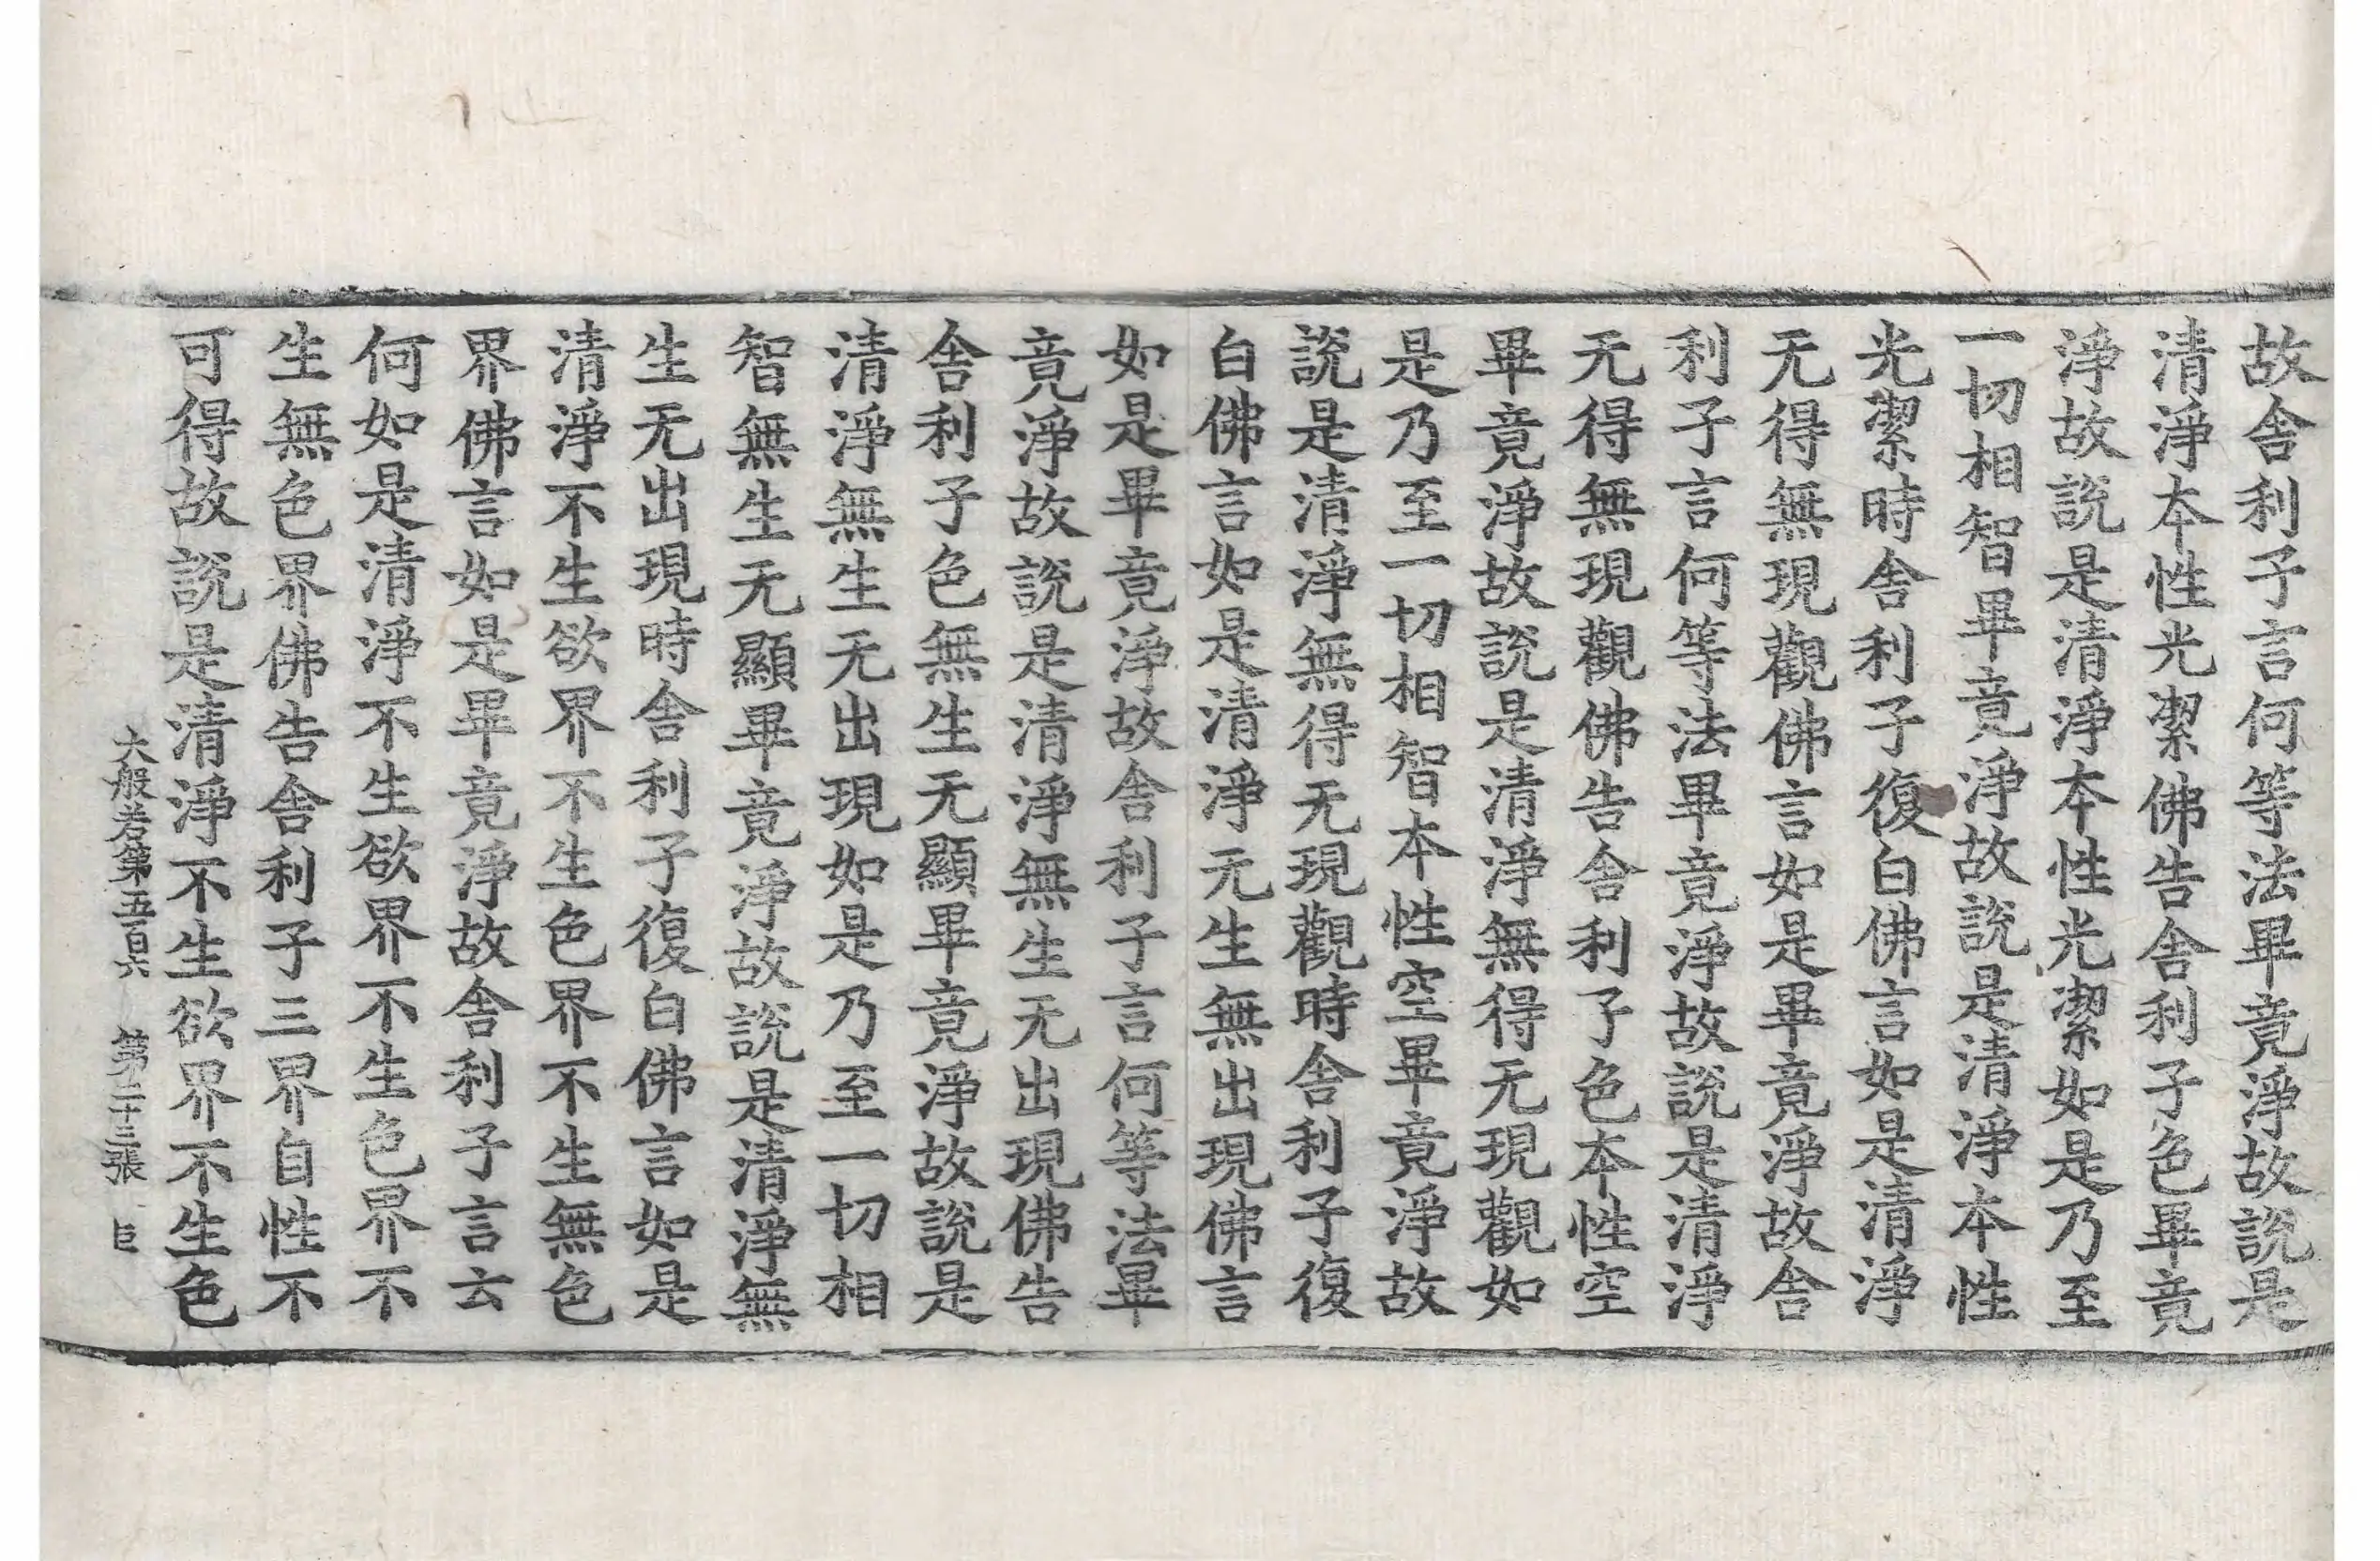 故舍利子言何等法畢竟淨故說是
清淨本性光潔佛告舍利子色畢竟
淨故說是清淨本性光潔如是乃至
一切相智畢竟淨故說是清淨本性
光潔時舍利子復白佛言如是清淨
无得無現觀佛言如是畢竟淨故舍
利子言何等法畢竟淨故說是清淨
无得無現觀佛告舍利子色本性空
畢竟淨故說是清淨無得无現觀如
是乃至一切相智本性空畢竟淨故
說是清淨無得无現觀時舍利子復
白佛言如是清淨无生無出現佛言
如是畢竟淨故舍利子言何等法畢
竟淨故說是清淨無生无出現佛告
舍利子色無生无顯畢竟淨故說是
清淨無生无出現如是乃至一切相
智無生无顯畢竟淨故說是清淨無
生无出現時舍利子復白佛言如是
清淨不生欲界不生色界不生無色
界佛言如是畢竟淨故舍利子言云
何如是清淨不生欲界不生色界不
生無色界佛告舍利子三界自性不
可得故說是清淨不生欲界不生色
大般若第五百六 第二十三張 巨